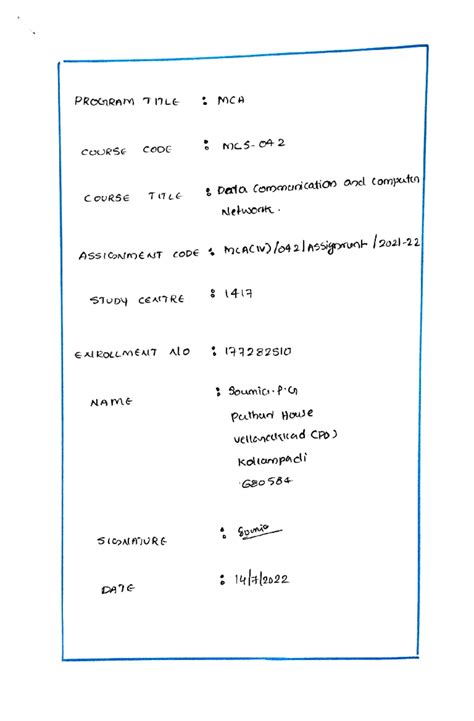 PROGRAM TITLE : MCA
COURSE CODE : MCS-042
COURSE TITLE : Data Communication and Computer
Network.
ASSIGNMENT CODE : MCA(IV)/042/Assignment/2021-22
STUDY CENTRE : 1417
ENROLLMENT NO : 177282510
NAME : Soumia.P.G
House
(PO)
680584
SIGNATURE : Soumia
DATE : 14/7/2022